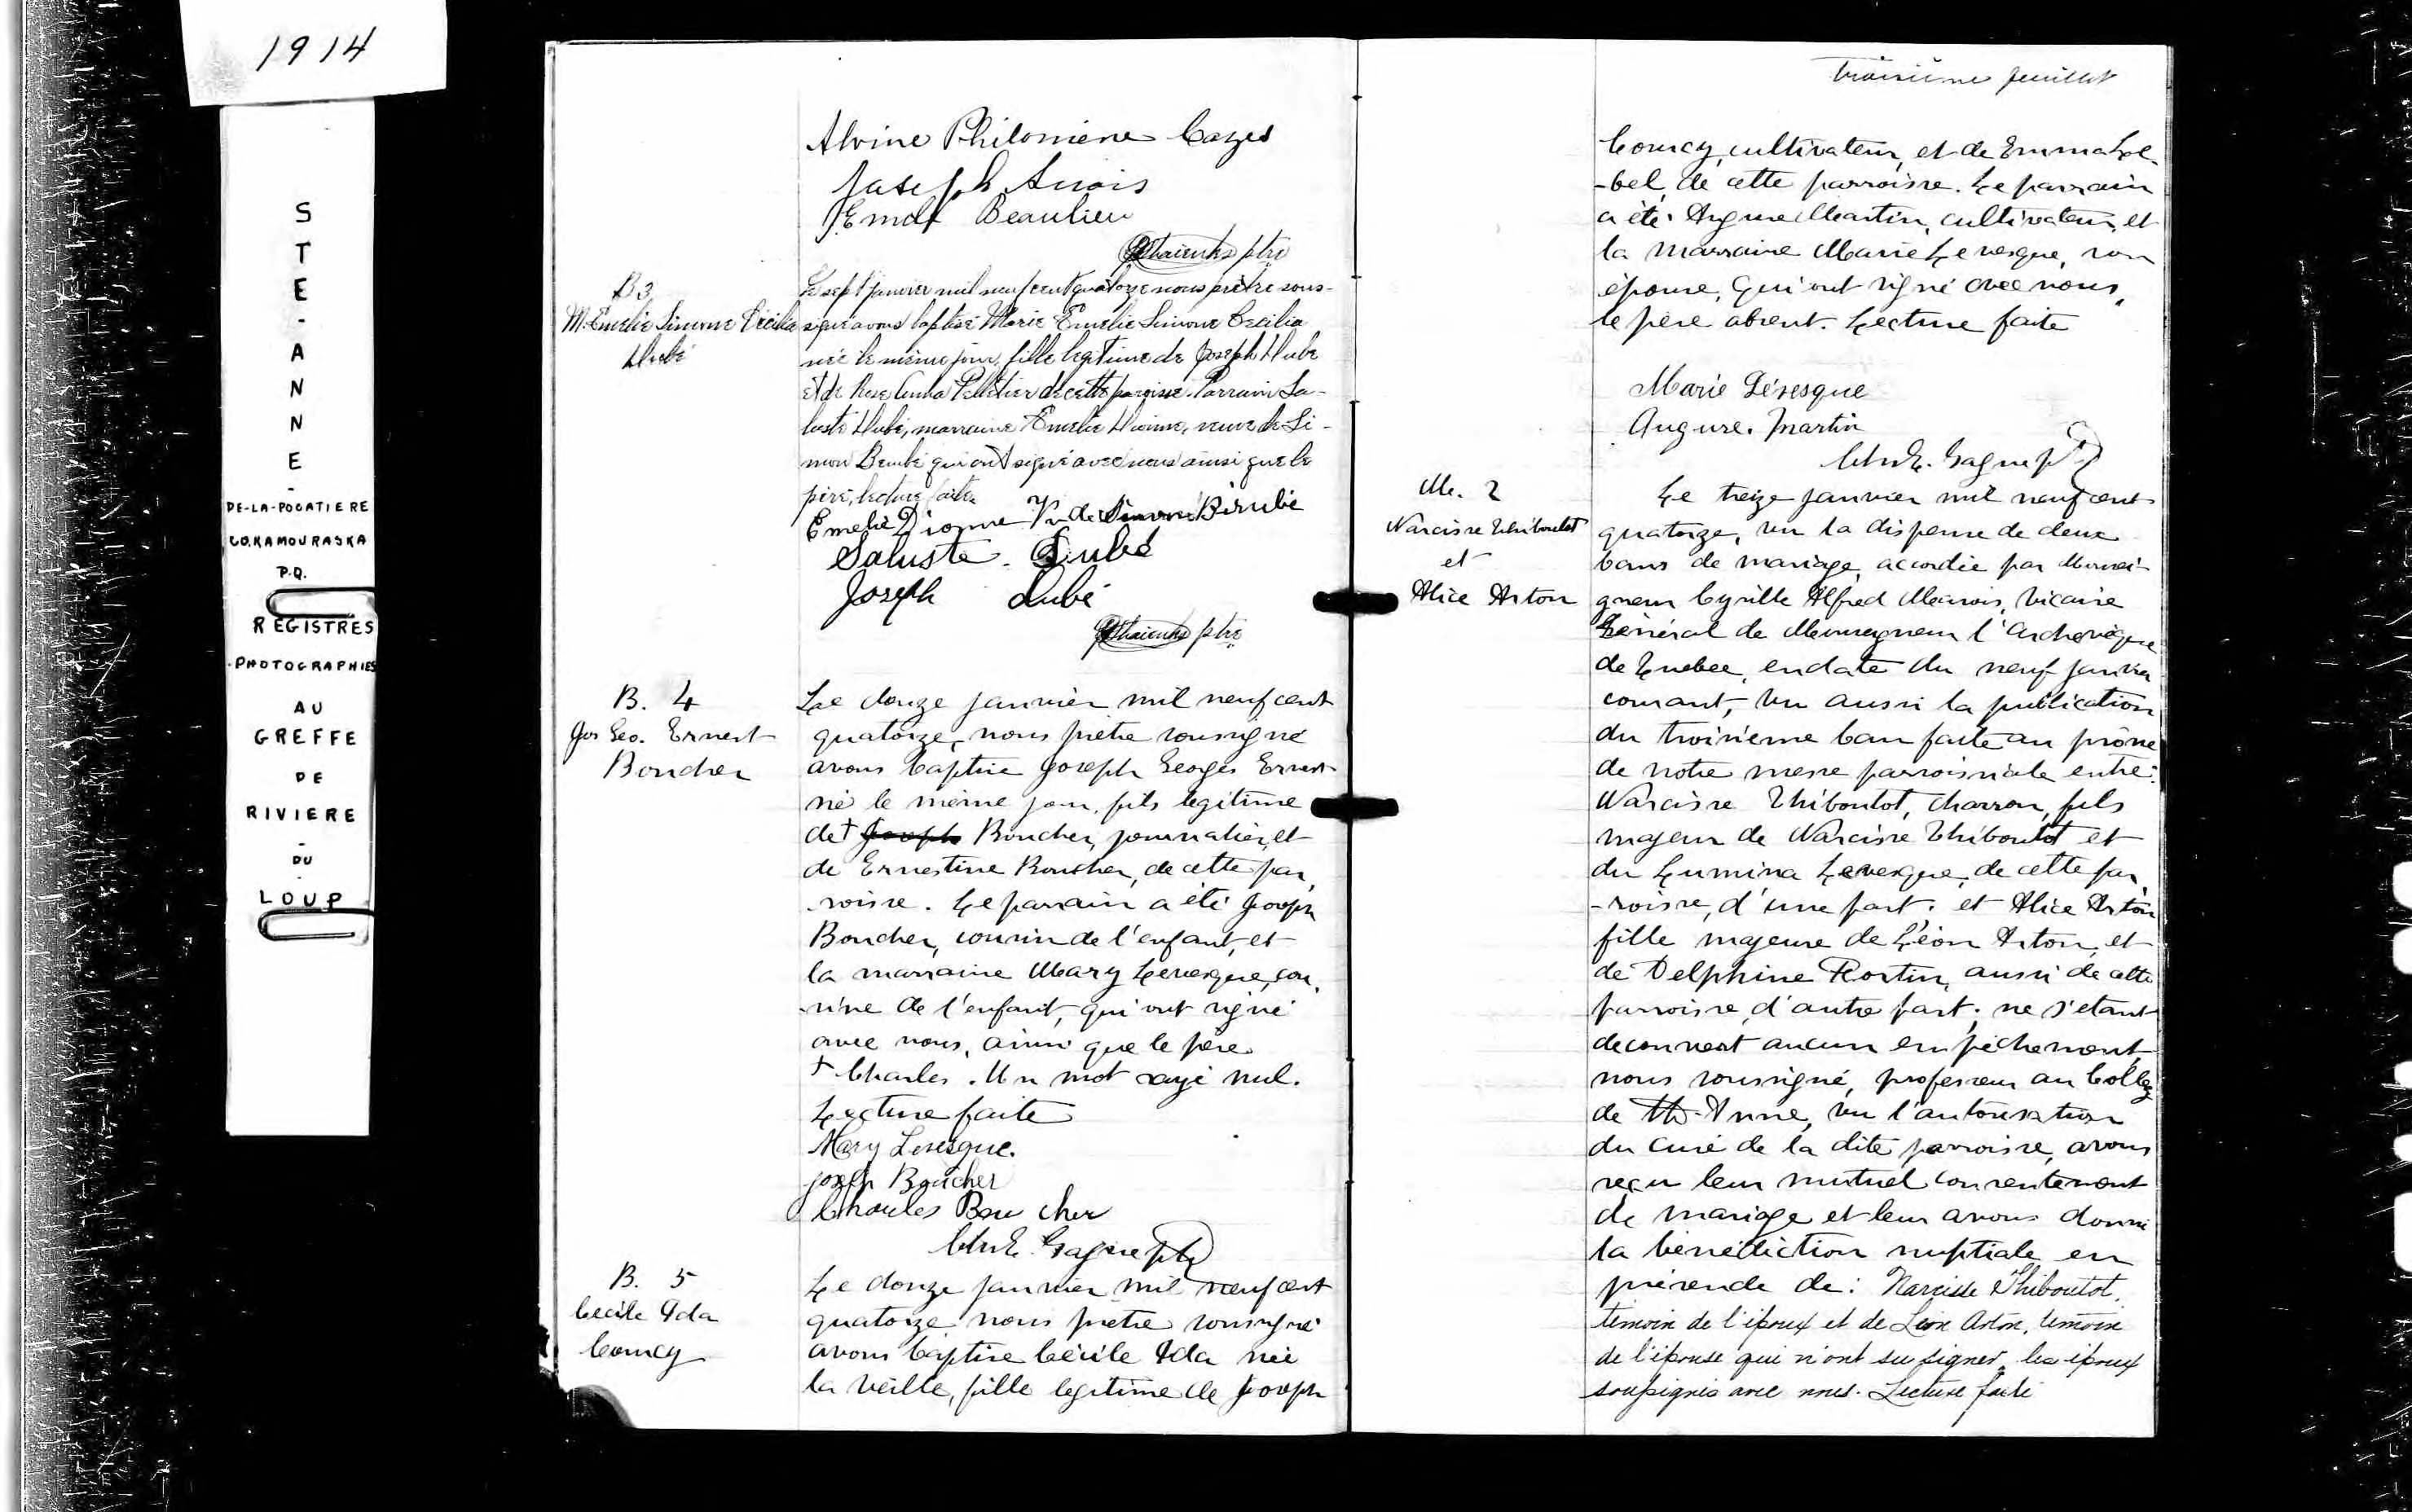 1914
S
T
E
-
A
N
N
E
-
DE-LA-POCATIERE
CO. KAMOURASKA
P.Q.
REGISTRES
PHOTOGRAPHIES
AU
GREFFE
DE
RIVIERE
-
DU
-
LOUP
Alvine Philomène Cazes
Joseph Anois
Beaulieu
ptre
B3
M. Emélie Simone Cécilia
Dubé
Le sept janvier mil neuf cent quatorze nous prêtre sous-
signé avons baptisé Marie Emelie Simone Cecilia
née le même jour, fille légitime de Joseph Dube
et de Rose Anna Pelletier de cette paroisse. Parrain Sa-
luste Dubé, marraine Emélie Dionne, veuve de Si-
mon Berubé qui ont signé avec nous ainsi que le
père, lecture faite.
Emelie Dionne Vve de Simon Bérubé
Saluste Dubé
Joseph Dubé
ptre
B. 4
Jos Geo. Ernest
Boucher
Le douze janvier mil neuf cent
quatorze, nous prêtre soussigné
avons baptisé Joseph Georges Ernest
né le même jour, fils légitime
de + Joseph Boucher, journalier, et
de Ernestine Boucher, de cette par,
-roisse. Le parrain a été Joseph
Boucher, cousin de l'enfant, et
la marraine Mary Levesque, cou,
-sine de l'enfant, qui ont signé
avec nous, ainsi que le père
+ Charles. Un mot rayé nul.
Lecture faite
Mary Levesque.
Joseph Boucher
Charles Boucher
Gagné ptre
B. 5
Cécile Ada
Courcy
Le douze janvier mil neuf cent
quatorze nous prêtre soussigné
avons baptisé Cécile Ada née
la veille, fille légitime de Joseph
Troisième feuillet
Courcy, cultivateur, et de Emma Le-
-bel, de cette parroisse. Le parrain
a été Augure Martin, cultivateur, et
la marraine Marie Levesque, son
épouse, qui ont signé avec nous,
le père absent. Lecture faite
Marie Lévesque
Augure. Martin
Gagné ptre
M. 2
Narcisse Thiboutot
et
Alice Aston
Le treize janvier mil neuf cent
quatorze, vu la dispense de deux
bans de mariage, accordée par Monsei-
gneur Cyrille Alfred Marois, Vicaire
Général de Monseigneur l'Archevêque
de Quebec, en date du neuf janvier
courant, vu aussi la publication
du troisième ban faite au prône
de notre messe parroissiale entre:
Narcisse Thiboutot, charron, fils
majeur de Narcisse Thiboutot et
du Lumina Levesque, de cette par,
-roisse, d'une part; et Alice Aston
fille majeure de Léon Aston, et
de Delphine Rostin, aussi de cette
parroisse, d'autre part; ne s'étant
decouvert aucun empêchement,
nous soussigné, professeur au Collège
de Ste-Anne, vu l'autorisation
du curé de la dite parroisse, avons
reçu leur mutuel consentement
de mariage et leur avons donné
la bénédiction nuptiale en
présence de: Narcisse Thiboutot,
témoin de l'époux et de Léon Aston, témoin
de l'épouse qui n'ont su signer, les époux
soussignés avec nous. Lecture faite